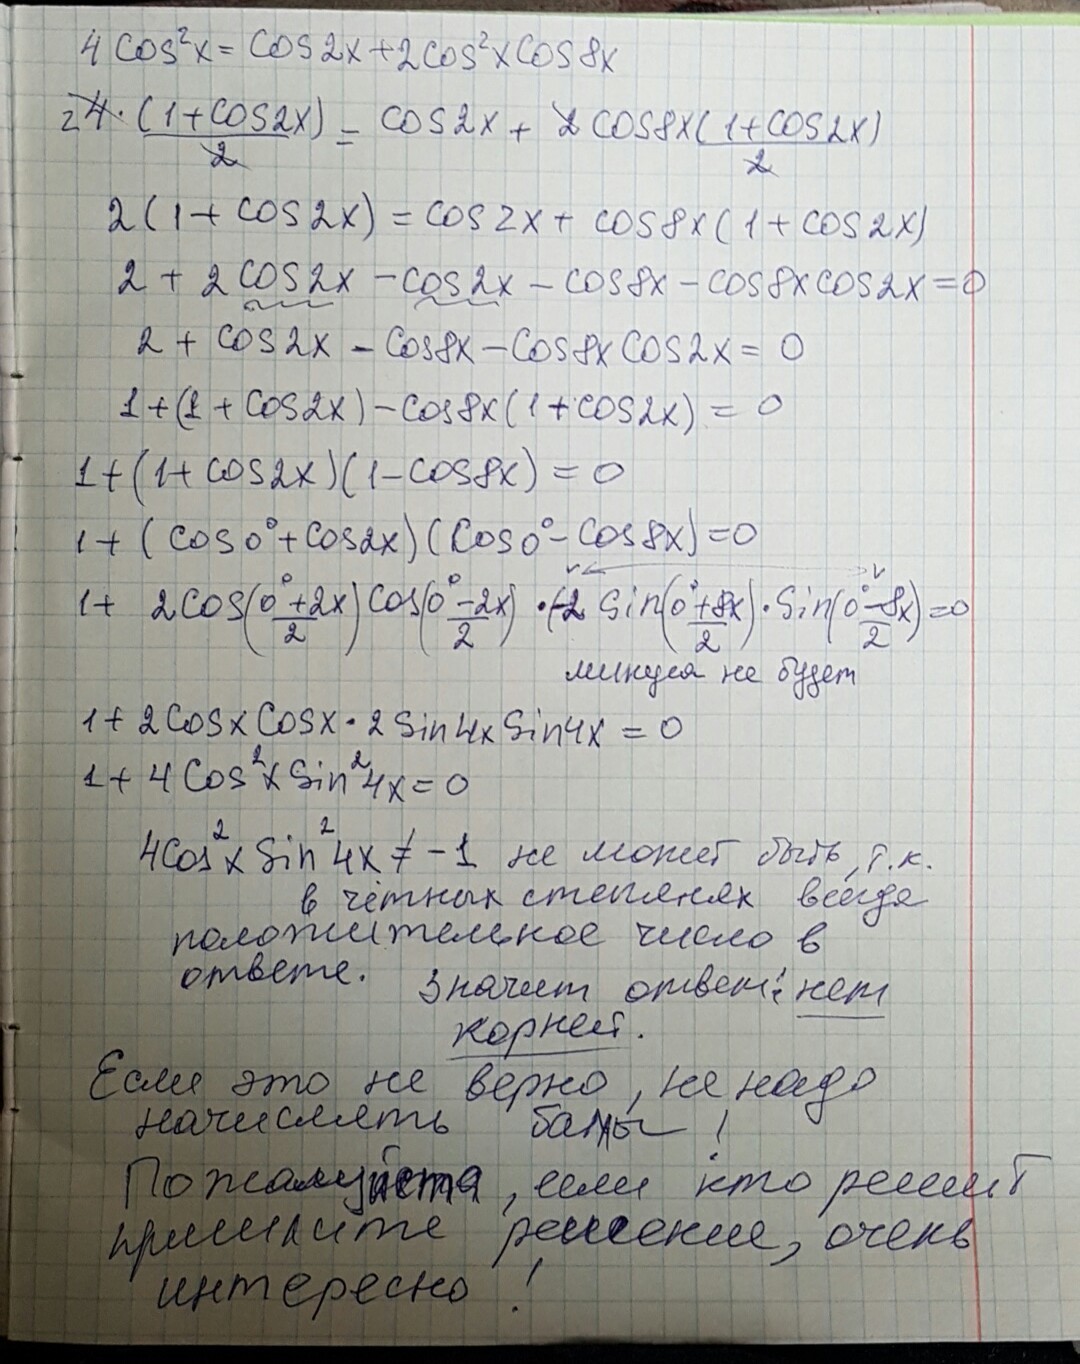 4 cos²x = cos2x + 2cos²x cos8x
2 4 · (1+cos2x)/2 = cos2x + 2 cos8x (1+cos2x)/2
2(1 + cos2x) = cos2x + cos8x(1 + cos2x)
2 + 2cos2x - cos2x - cos8x - cos8x cos2x = 0
2 + cos2x - cos8x - cos8x cos2x = 0
1 + (1 + cos2x) - cos8x(1 + cos2x) = 0
1 + (1 + cos2x)(1 - cos8x) = 0
1 + (cos0° + cos2x)(cos0° - cos8x) = 0
1 + 2cos((0°+2x)/2) cos((0°-2x)/2) · (-2 sin((0°+8x)/2) · sin((0°-8x)/2) = 0
минуса не будет
1 + 2cosx cosx · 2 sin4x sin4x = 0
1 + 4 cos²x sin²4x = 0
4cos²x sin²4x ≠ -1 не может быть, т.к.
в чётных степенях всегда
положительное число в
ответе. Значит ответ: нет
корней.
Если это не верно, не надо
начислять баллы!
Пожалуйста, если кто решит
пришлите решение, очень
интересно!